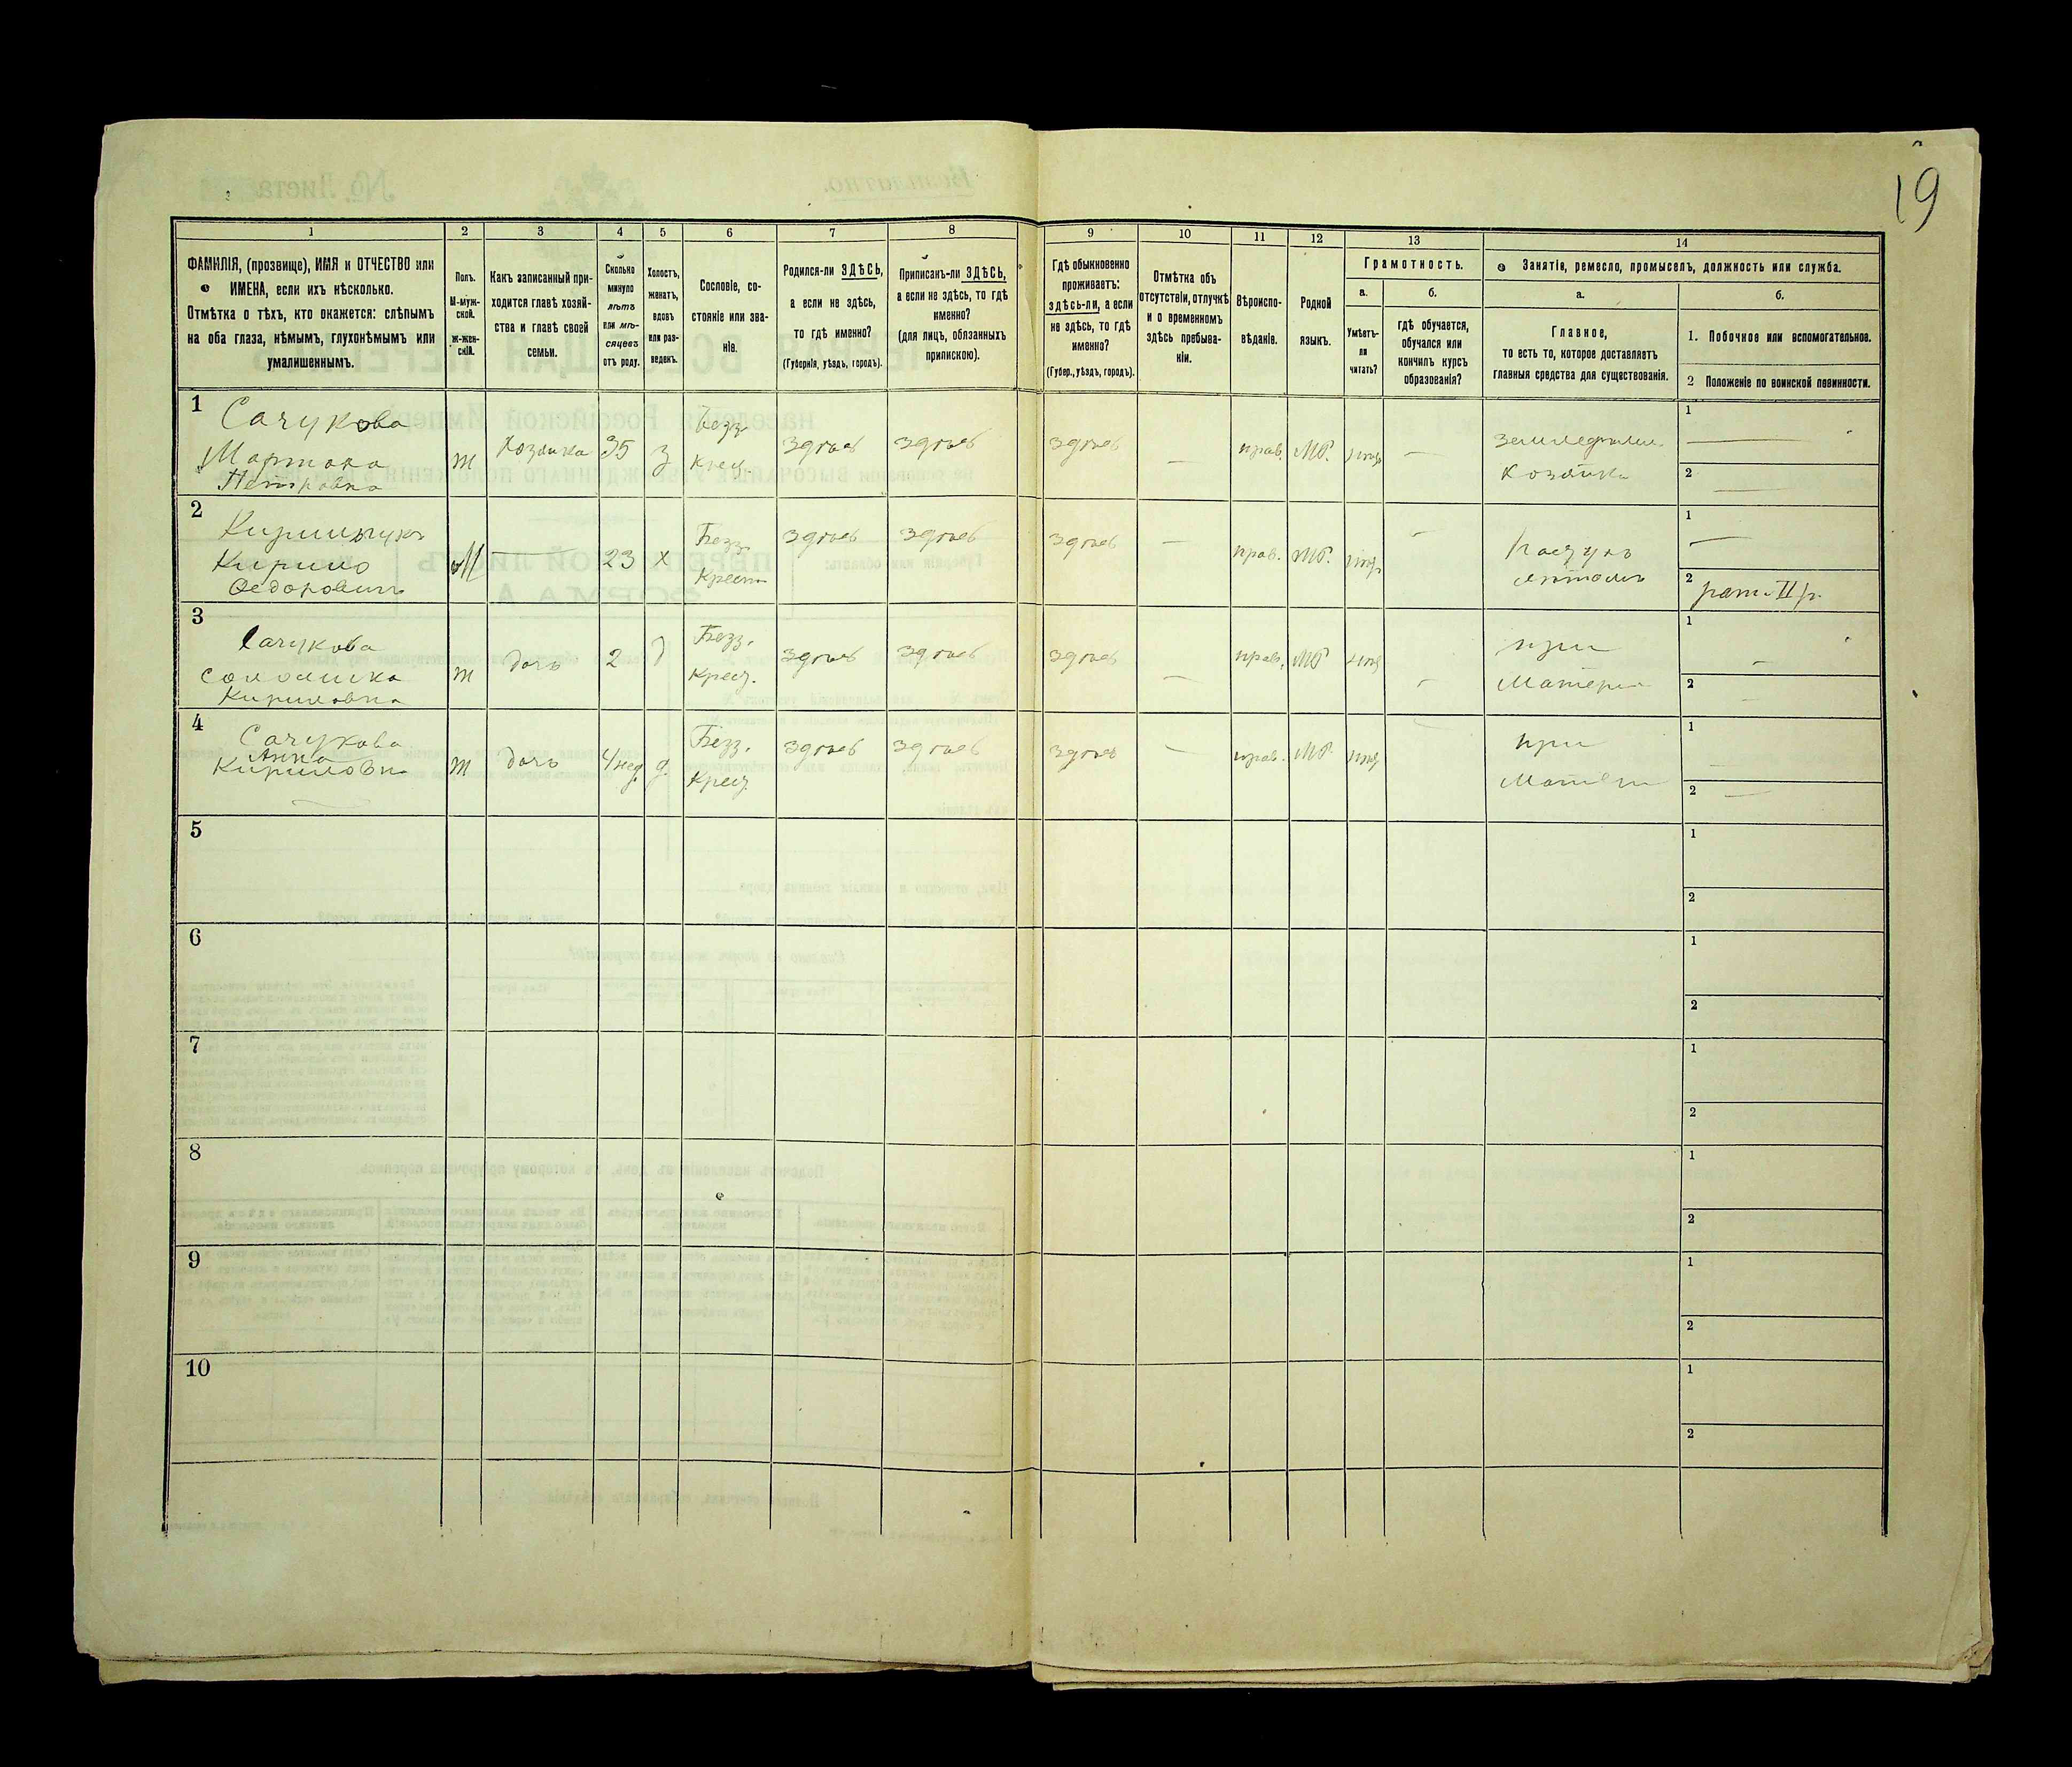 19
1
2
3
4
5
6
7
8
9
10
11
12
13
14
ФАМИЛІЯ, (прозвище), ИМЯ и ОТЧЕСТВО или
ИМЕНА, если ихъ нѣсколько.
Отмѣтка о тѣхъ, кто окажется: слѣпымъ
на оба глаза, нѣмымъ, глухонѣмымъ или
умалишеннымъ.
Полъ.
М-муж-
ской.
ж-жен-
скій.
Какъ записанный при-
ходится главѣ хозяй-
ства и главѣ своей
семьи.
Сколько
минуло
лѣтъ
или мѣ-
сяцевъ
отъ роду.
Холостъ,
женатъ,
вдовъ
или раз-
веденъ.
Сословіе, со-
стояніе или зва-
ніе.
Родился-ли ЗДѢСЬ,
а если не здѣсь,
то гдѣ именно?
(Губернія, уѣздъ, городъ).
Приписанъ-ли ЗДѢСЬ,
а если не здѣсь, то гдѣ
именно?
(для лицъ, обязанныхъ
припискою).
Гдѣ обыкновенно
проживаетъ:
здѣсь-ли, а если
не здѣсь, то гдѣ
именно?
(Губер., уѣздъ, городъ).
Отмѣтка объ
отсутствіи, отлучкѣ
и о временномъ
здѣсь пребыва-
ніи.
Вѣроиспо-
вѣданіе.
Родной
языкъ.
Грамотность.
а.
Умѣетъ-
ли
читать?
б.
гдѣ обучается,
обучался или
кончилъ курсъ
образованія?
Занятіе, ремесло, промыселъ, должность или служба.
а.
Главное,
то есть то, которое доставляетъ
главныя средства для существованія.
б.
1. Побочное или вспомогательное.
2 Положеніе по воинской повинности.
1
Сачукова
Петровна
Хозяйка
35
Безз.
Крест.
здѣсь
здѣсь
здѣсь
—
прав.
МР.
—
Хозяйка
1 —
2 —
2
Кирило
Федоровичъ
М
—
23
Х
Безз.
Крест.
здѣсь
здѣсь
здѣсь
—
прав.
МР.
—
1 —
2 рат. II р.
3
Сачукова
Кириловна
дочь
2
Безз.
Крест.
здѣсь
здѣсь
здѣсь
—
прав.
МР
—
при
Матери
1 —
2 —
4
Сачукова
Анна
Кириловна
дочь
4 нед.
д.
Безз.
Крест.
здѣсь
здѣсь
здѣсь
—
прав.
МР.
—
при
Матери
1 —
2 —
5
1
2
6
1
2
7
1
2
8
1
2
9
1
2
10
1
2